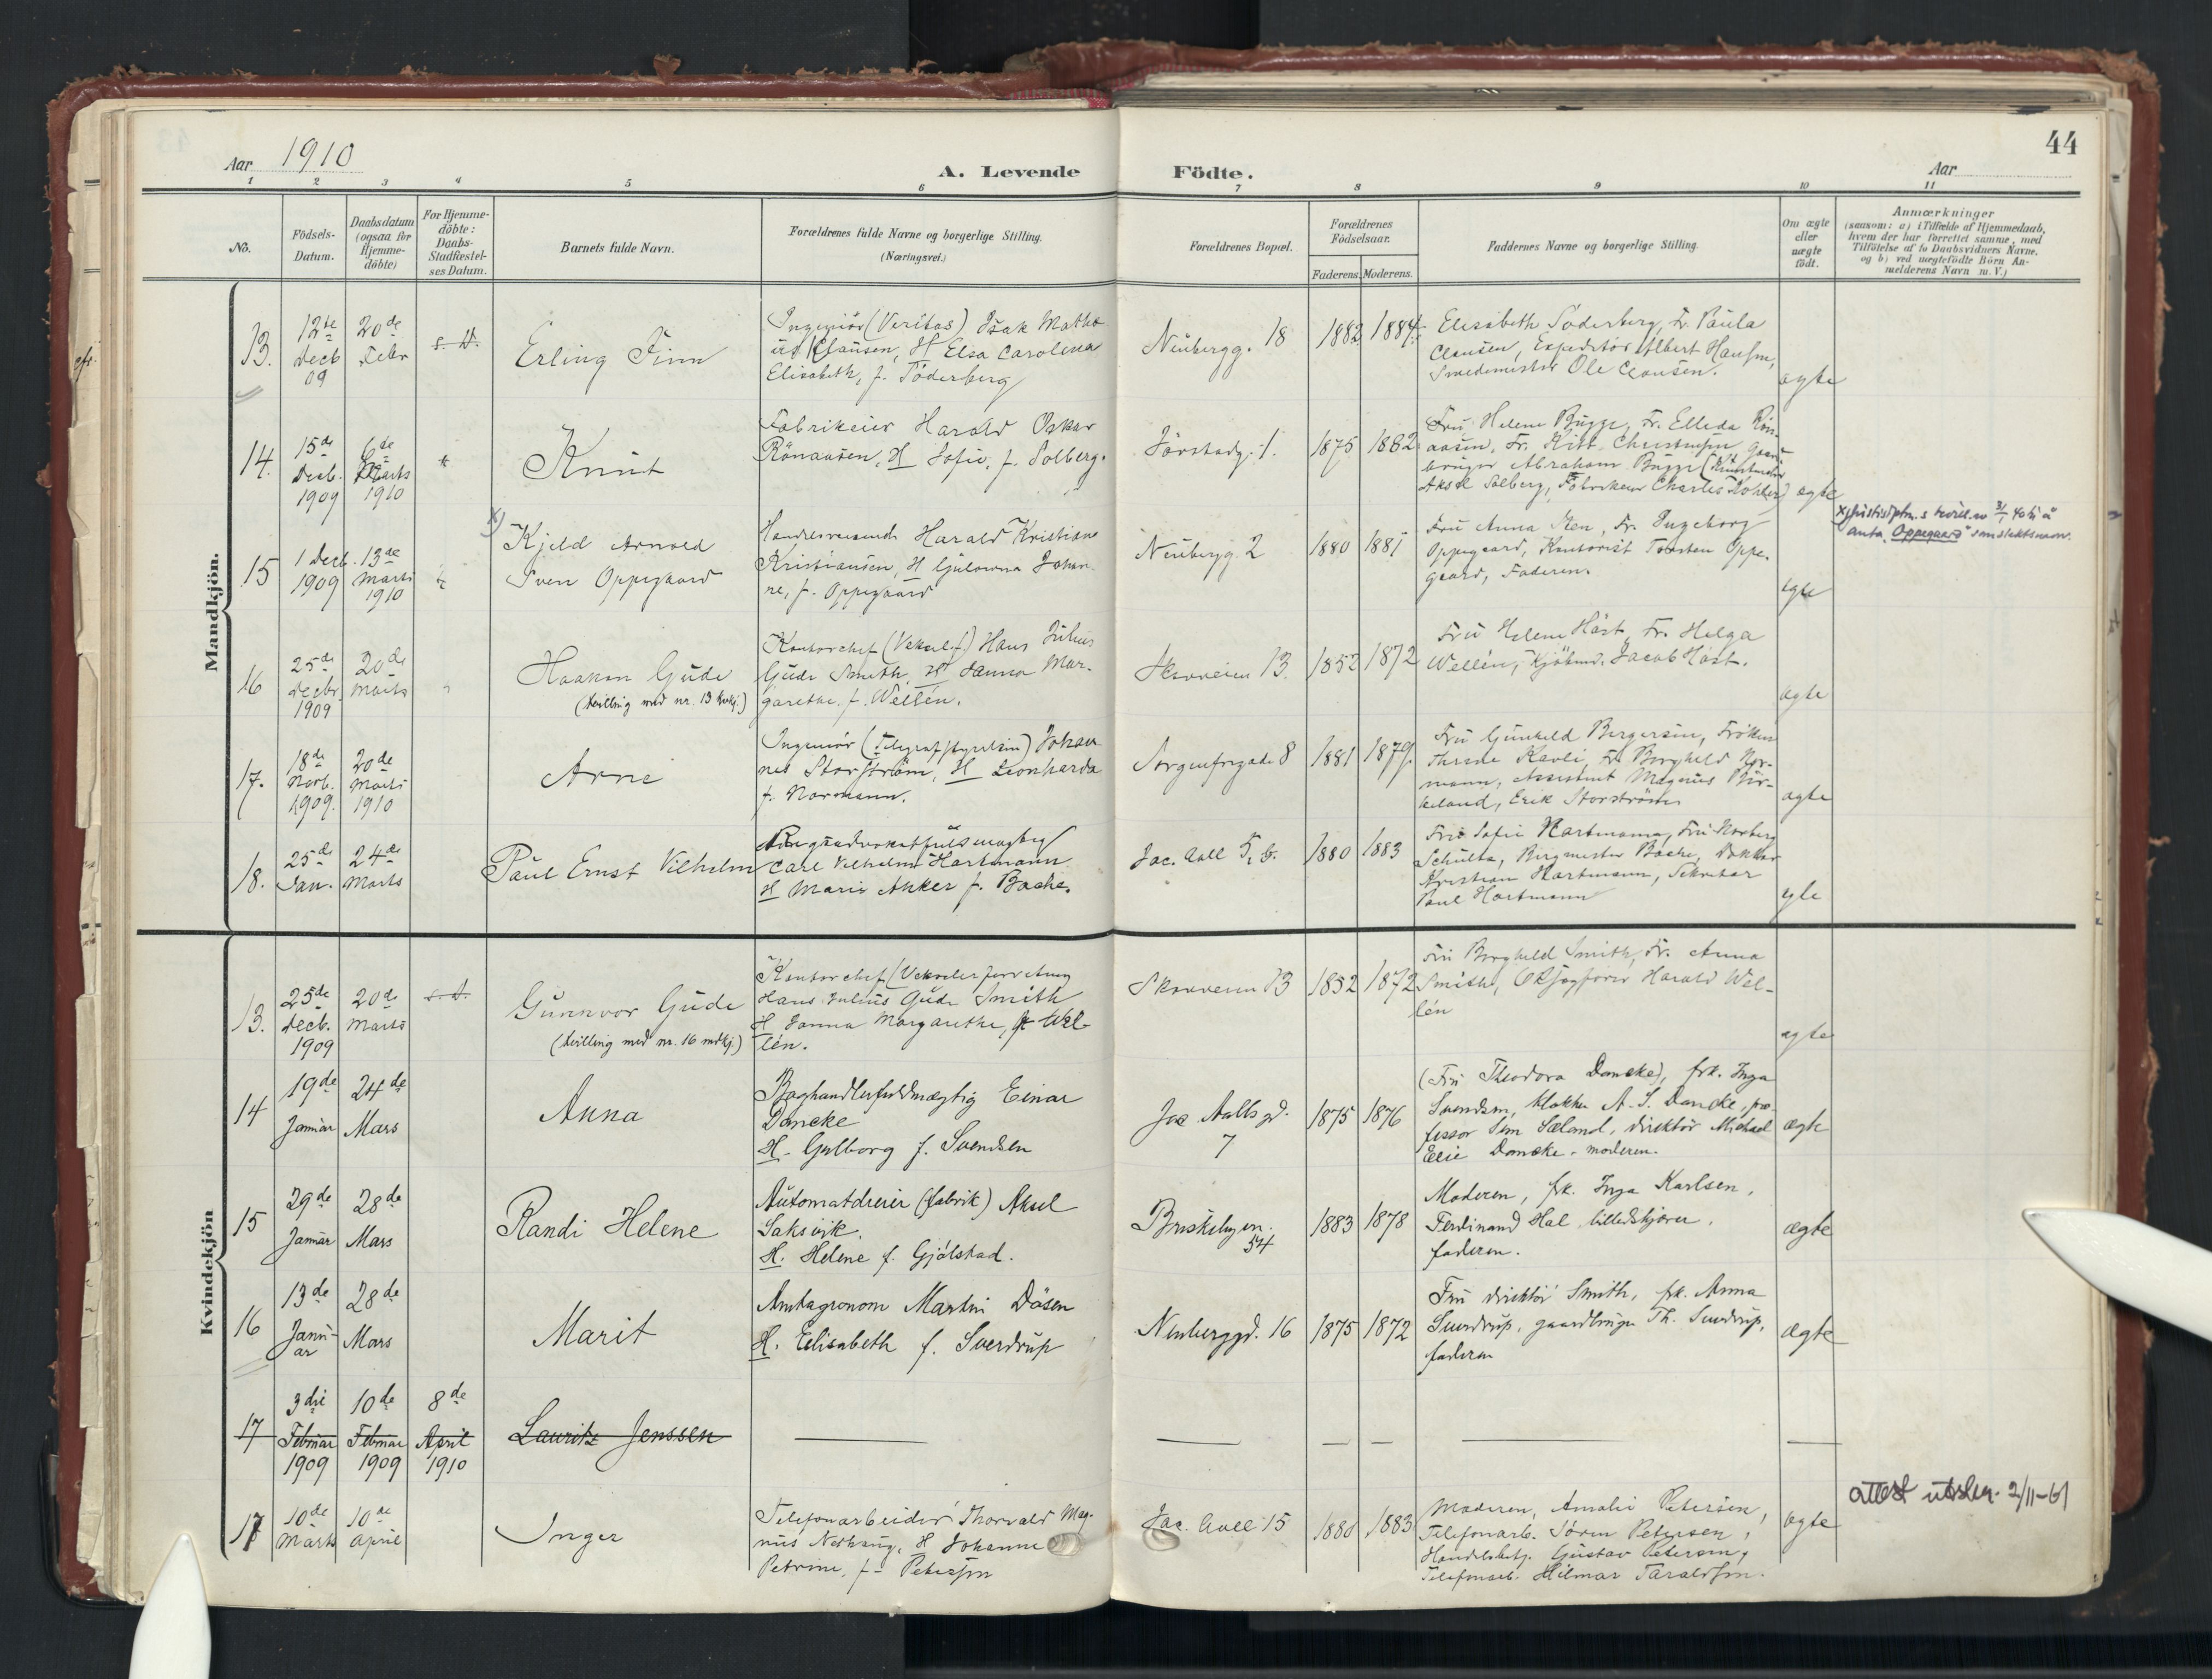 44
Aar 1910
A. Levende Födte.
Aar
1 2 3 4 5 6 7 8 9 10 11
No.
Födsels-
Datum.
Daabsdatum
(ogsaa for
Hjemme-
döbte)
For Hjemme-
döbte:
Daabs-
Stadfæstel-
ses Datum.
Barnets fulde Navn.
Forældrenes fulde Navne og borgerlige Stilling.
(Næringsvei.)
Forældrenes Bopæl.
Forældrenes
Födselsaar.
Faderens. Moderens.
Faddernes Navne og borgerlige Stilling.
Om ægte
eller
uægte
födt.
Anmærkninger
(saasom: a) i Tilfælde af Hjemmedaab,
hvem der har forrettet samme, med
Tilföielse af to Daabsvidners Navne.
og b) ved uægtefödte Börn An-
melderens Navn m. V.)
Mandkjön.
13.
12te
Decb
09
20de
Febr
s. D.
Erling Finn
Ingeniör (Veritas) Isak Matho
Clausen, H Elsa Carolina
Elisabeth, f. Söderberg
Neubergg. 18
1882
1884
Elisabeth Söderberg, Fr. Paula
Clausen, Expeditör Albert Hansen,
Smedemester Ole Clausen.
ægte
14.
15de
Decb.
1909
6de
Marts
1910
Knut
Fabrikeier Harald Oskar
Rönaasen, H Sofie, f. Solberg.
1
1875
1882
Fru Helene Bugge, Fr. Elleda Rön-
aasen, Fr. Kitt Christensen, Gaard-
bruger Abraham Bugge
Aksel Solberg, Fabrikeier Charles Kohler)
ægte
15
1 Decb.
1909
13de
Marts
1910
x)
Kjeld Arnold
Sven Oppegaard
Handelsreisende Harald Kristian
Kristiansen, H Gulowna Johan-
ne, f. Oppegaard
Neubergg. 2
1880
1881
Fru Anna Sten, Fr. Ingeborg
Oppegaard, Kontorist Torsten Oppe-
gaard, Faderen.
ægte
x) Justisdptm.s bevill. av 3/1 40 til å
anta "Oppegaard" som slektsnavn.
16
25de
Decbr
1909
20de
Marts
Haakon Gude
(tvilling med nr. 13 kvkj.)
Kontorchef Hans Julius
Gude Smith, H Hanna Mar-
garethe, f. Wellén.
Skovveien 13.
1852
1872
Fru Helene Höst, Fr. Helga
Wellén, Kjöbmd. Jacob Höst.
ægte
17.
18de
Novb.
1909.
20de
Marts
1910
Arne
Ingeniör (Telegrafstyrelsen) Johan-
nes Storström, H Leonharda
f. Normann.
Sorgenfrigade 8
1881
1879.
Fru Gunhild Bergersen, Fröken
Thrine Kavli, Fr. Borghild Nor-
mann, Assistent Magnus Bir-
keland, Erik Storström
ægte
18.
25de
Jan.
24de
Marts
Paul Ernst Vilhelm
Carl Vilhelm Hartmann
H Marie Anker f. Bache.
Jac. Aall 5, b.
1880
1883
Fru Sofie Hartmann, Fru Norberg
Schultz, Bergmester Bache, Doktor
Kristian Hartmann, Sekretær
Paul Hartmann
ægte
Kvindekjön
13.
25de
Decb.
1909
20de
Marts
s. D.
Gunnvor Gude
(tvilling med nr. 16 mdkj.)
Kontorchef (Vekselerforretning
Hans Julius Gude Smith
H Hanna Margarethe, f. Wel-
lén.
Skovveien 13
1852
1872
Fru Borghild Smith, Fr. Anna
Smith, O.R.sagförer Harald Wel-
lén
ægte
14
19de
Januar
24de
Mars
Anna
Boghandlerfuldmægtig Einar
Dancke
H. Gulborg f. Svendsen
Jac Aalls gd.
7
1875
1876
(Fru Theodora Dancke), frk. Inga
Svendsen, klokker A. S. Dancke, pro-
fessor Sem Sæland, direktör Michael
Elie Dancke. moderen.
ægte
15
29de
Januar
28de
Mars
Randi Helene
Automatdreier (fabrik) Aksel
Saksvik.
H. Helene f. Gjölstad.
Briskebyvn.
54
1883
1878
Moderen, frk. Inga Karlsen,
Ferdinand Hal, billedskjærer,
faderen.
ægte
16
13de
Janu-
ar
28de
Mars
Marit
Amtagronom Martin Dösen
H. Elisabeth f. Sverdrup
Neuberggd. 16
1875
1872
Fru direktör Smith, frk. Anna
Sverdrup, gaardbruger Th. Sverdrup,
faderen
ægte
17
3die
Februar
1909
10de
Februar
1909
8de
April
1910
Lauritz Jenssen
17
10de
Marts
10de
April
Inger
Telefonarbeider Thorvald Mag-
nus Nethaug, H Johanne
Petrine, f. Petersen
Jac. Aall 15
1880
1883
Moderen, Amalie Petersen,
Telefonarb. Sören Petersen,
Handelsbetj. Gustav Petersen,
Telefonarb. Hilmar Taraldsen.
ægte
attest utsten. 2/11-61